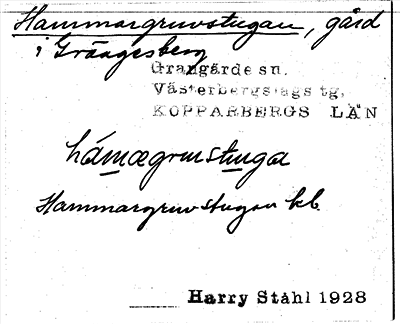 Hammargruvstugan, gård
i Grängesberg
Grangärde sn.
Västerbergslags tg.
KOPPARBERGS LÄN
hámægruvstuga
Hammargruvstugan kb.
Harry Ståhl 1928